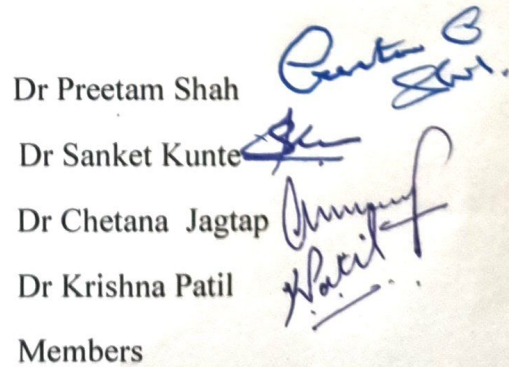 Dr Preetam Shah
Dr Sanket Kunte
Dr Chetana Jagtap
Dr Krishna Patil
KPatil
Members